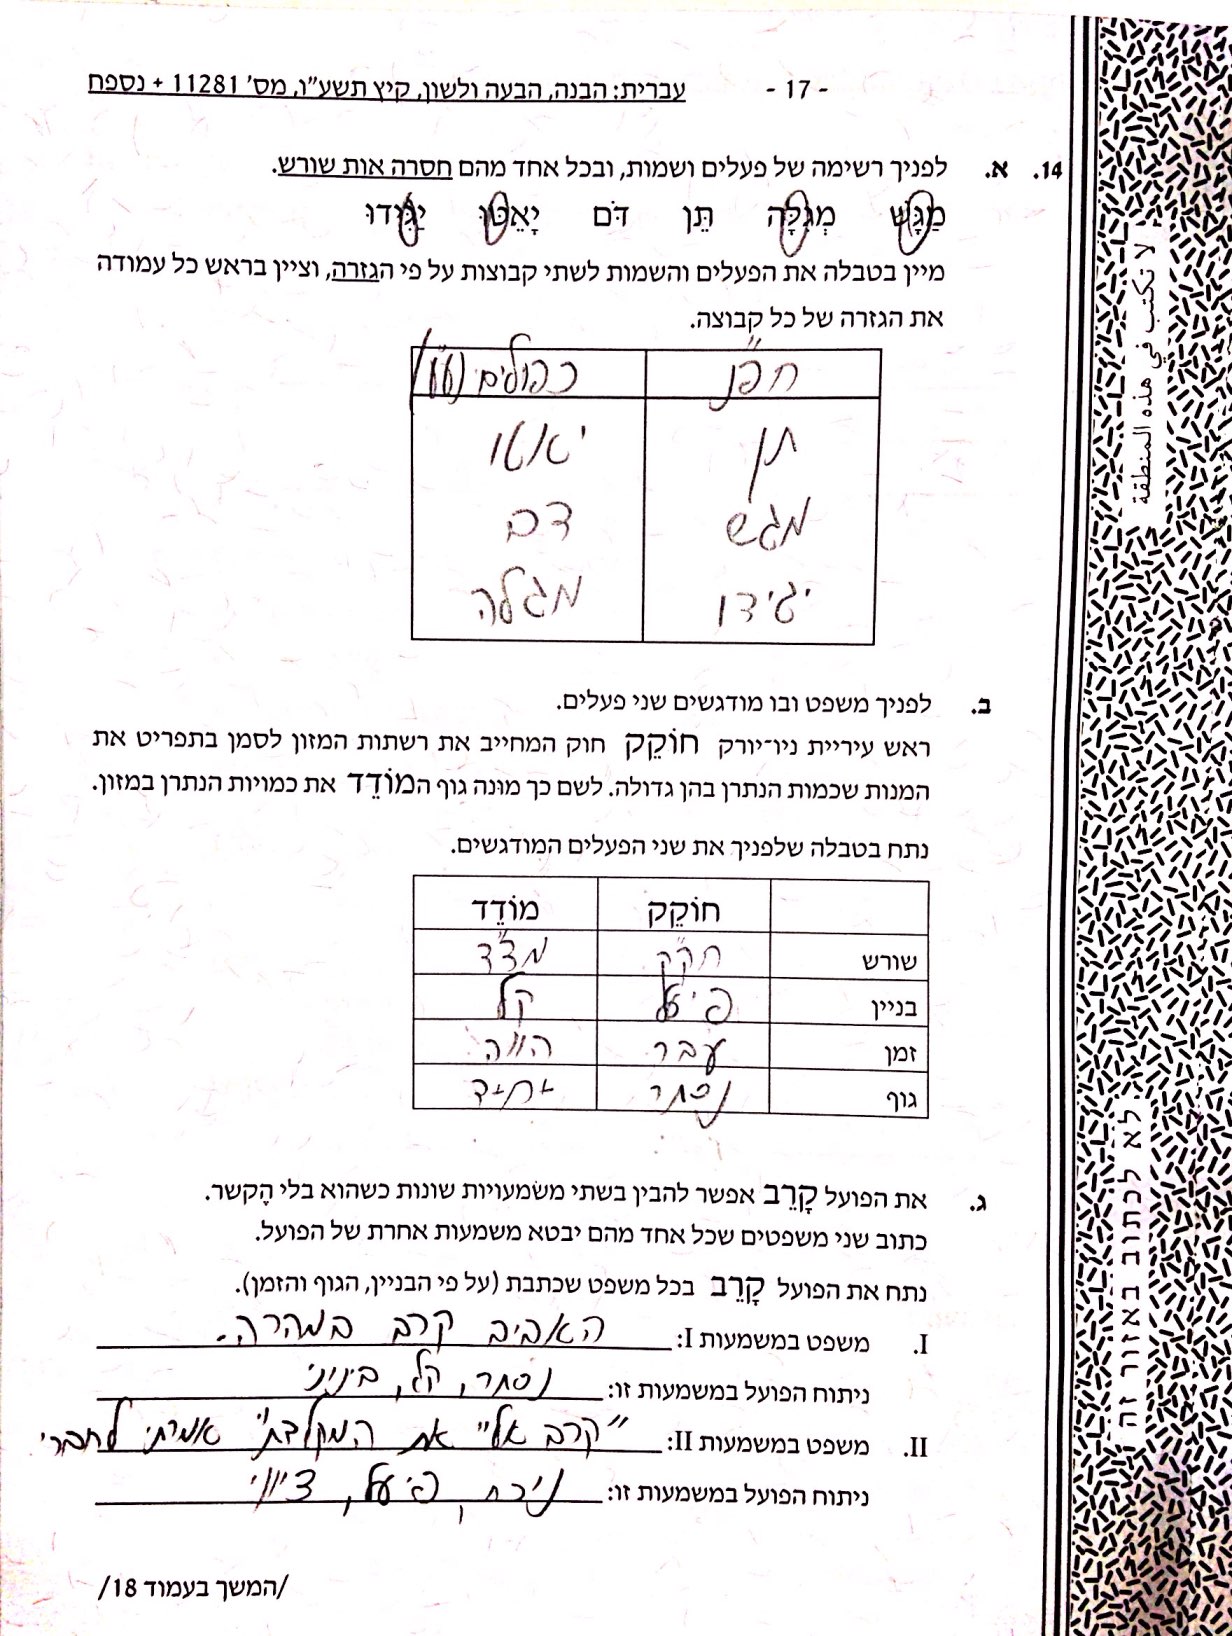 - 17 - עברית: הבנה, הבעה ולשון, קיץ תשע"ו, מס' 11281 + נספח
14. א. לפניך רשימה של פעלים ושמות, ובכל אחד מהם חסרה אות שורש.
מַגָּשׁ מְגִלָּה תֵּן דֹּם יָאֵטּוּ יַגִּידוּ
מיין בטבלה את הפעלים והשמות לשתי קבוצות על פי הגזרה, וציין בראש כל עמודה
את הגזרה של כל קבוצה.
חפ"נ כפולים (ע"ע)
תן יאטו
מגש דם
יגידו מגלה
ב. לפניך משפט ובו מודגשים שני פעלים.
ראש עיריית ניו־יורק חוֹקֵק חוק המחייב את רשתות המזון לסמן בתפריט את
המנות שכמות הנתרן בהן גדולה. לשם כך מונה גוף המוֹדֵד את כמויות הנתרן במזון.
נתח בטבלה שלפניך את שני הפעלים המודגשים.
חוֹקֵק מוֹדֵד
שורש חק"ק מד"ד
בניין פיעל קל
זמן עבר הווה
גוף נסתר יחיד
ג. את הפועל קָרֵב אפשר להבין בשתי משמעויות שונות כשהוא בלי הֶקשר.
כתוב שני משפטים שכל אחד מהם יבטא משמעות אחרת של הפועל.
נתח את הפועל קָרֵב בכל משפט שכתבת (על פי הבניין, הגוף והזמן).
I. משפט במשמעות I: האביב קרב במהרה.
ניתוח הפועל במשמעות זו: נסתר, קל, בינוני
II. משפט במשמעות II: "קרב אליי את המקלדת" אמרתי לחברי
ניתוח הפועל במשמעות זו: נוכח, פיעל, ציווי
/המשך בעמוד 18/
لا تكتب في هذه المنطقة
לא לכתוב באזור זה